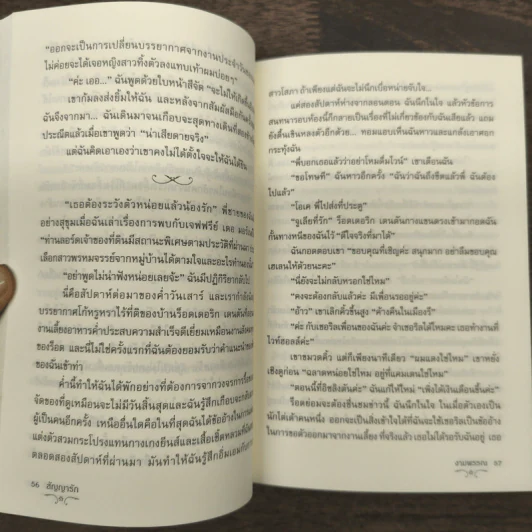 "ออกจะเป็นการเปลี่ยนบรรยากาศจากงานประจำวัน
ไม่ค่อยจะได้เจอหญิงสาวทิ้งตัวลงแทบเท้าผมบ่อยๆ"
"ค่ะ เออ..." ฉันพูดด้วยใบหน้าสีจัด "จะไม่ให้เกิดขึ้น
เขาก้มลงส่งยิ้มให้ฉัน และหลังจากสัมผัสมือกัน
ฉันจึงจากมา... ฉันเดินมาจนเกือบจะสุดทางเดิน
ประณีตแล้วเมื่อเขาพูดว่า "น่าเสียดายจริง"
แต่ฉันคิดเอาเองว่าเขาคงไม่ได้ตั้งใจจะให้ฉันได้ยิน
"เธอต้องระวังตัวหน่อยแล้วน้องรัก"
อย่างสุขุมเมื่อฉันเล่าเรื่องการพบกับเจฟฟรีย์ เดอ
"ท่านลอร์ดเจ้าของที่ดินมีสถานะพิเศษตามประวัติที่ผ่านมา
เลือกสาวพรหมจรรย์จากหมู่บ้านได้ตามใจ
"อย่าพูดไม่น่าฟังหน่อยเลยจ้ะ" ฉันมีปฏิกิริยา
นี่คือสัปดาห์ต่อมาของค่ำวันเสาร์ และเรากำลัง
บรรยากาศโก้หรูหราไร้ที่ติของบ้านร็อดเดอริก เดนตัน
งานเลี้ยงอาหารค่ำประสบความสำเร็จดีเยี่ยม
ของร็อด และนี่ไม่ใช่ครั้งแรกที่ฉันต้องยอมรับว่า
ของฉันเข้าท่า
ค่ำนี้ทำให้ฉันได้พักอย่างที่ต้องการจากวงจรการ
จัดของที่ดูเหมือนจะไม่มีวันสิ้นสุดและฉันรู้สึกเกือบจะ
ผู้เป็นคนอีกครั้ง เหนือสิ่งอื่นใดคือในที่สุดฉันได้ข้ออ้างในการ
แต่งตัวสวมกระโปรงแทนกางเกงยีนส์และเสื้อเชิ้ต
ตลอดสองสัปดาห์ที่ผ่านมา มันทำให้ฉันรู้สึก
56 สัญญารัก
สาวโสภา ถ้าเพียงแต่ฉันจะไม่นึกเบื่อหน่ายจับใจ...
แค่สองสัปดาห์ห่างจากลอนดอน ฉันนึกในใจ แล้วหัวข้อการ
สนทนารอบห้องนี้ก็กลายเป็นเรื่องที่ไม่เกี่ยวข้องกับฉันเสียแล้ว แถม
ยังตื้นเขินหลงตัวอีกด้วย... ทอมแอบเห็นฉันหาวและแกล้งเอาศอก
กระทุ้งฉัน
"พี่บอกเธอแล้วว่าอย่าโหมดื่มไวน์" เขาเตือนฉัน
"ขอโทษที" ฉันหาวอีกครั้ง "ฉันว่าฉันถึงขีดแล้วพี่ ฉันต้อง
ไปแล้ว"
"โอเค พี่ไปส่งที่ประตู"
"จูเลียที่รัก" ร็อดเดอริก เดนตันกางแขนตรงเข้ามากอดฉัน
กั้นทางหนีของฉันไว้ "ดีใจจริงที่มาได้"
ฉันกอดตอบเขา "ขอบคุณที่เชิญค่ะ สนุกมาก อย่าลืมขอบคุณ
เฮเลนให้ด้วยนะคะ"
"นี่ยังจะไม่กลับหรอกใช่ไหม"
"คงจะต้องกลับแล้วค่ะ มีเพื่อนรออยู่ค่ะ"
"อ๋าว" เขาเลิกคิ้วขึ้นสูง "ค้างคืนในเมืองรึ"
"ค่ะ กับเชอริลเพื่อนของฉันค่ะ จำเชอริลได้ไหมคะ เธอทำงานที่
ไวท์ฮอลล์ค่ะ"
เขาขมวดคิ้ว แต่ก็เพียงนาทีเดียว "ผมแดงใช่ไหม" เขาหยั่ง
เชิงดูก่อน "ฉลาดหน่อยใช่ไหม อยู่ที่แคมเดนใช่ไหม"
"ตอนนี้ที่อิชลิงตันค่ะ" ฉันแก้ให้ใหม่ "เพิ่งได้เงินเดือนขึ้นค่ะ"
ร็อดย่อมจะต้องชื่นชมข่าวนี้ ฉันนึกในใจ ในเมื่อตัวเองเป็น
นักไต่เต้าคนหนึ่ง ออกจะเป็นสิ่งเข้าใจได้ที่ฉันจะใช้เชอริลเป็นข้ออ้าง
ในการขอตัวออกมาจากงานเลี้ยง ที่จริงแล้ว เธอไม่ได้รอรับฉันอยู่ เธอ
งามพรรณ 57